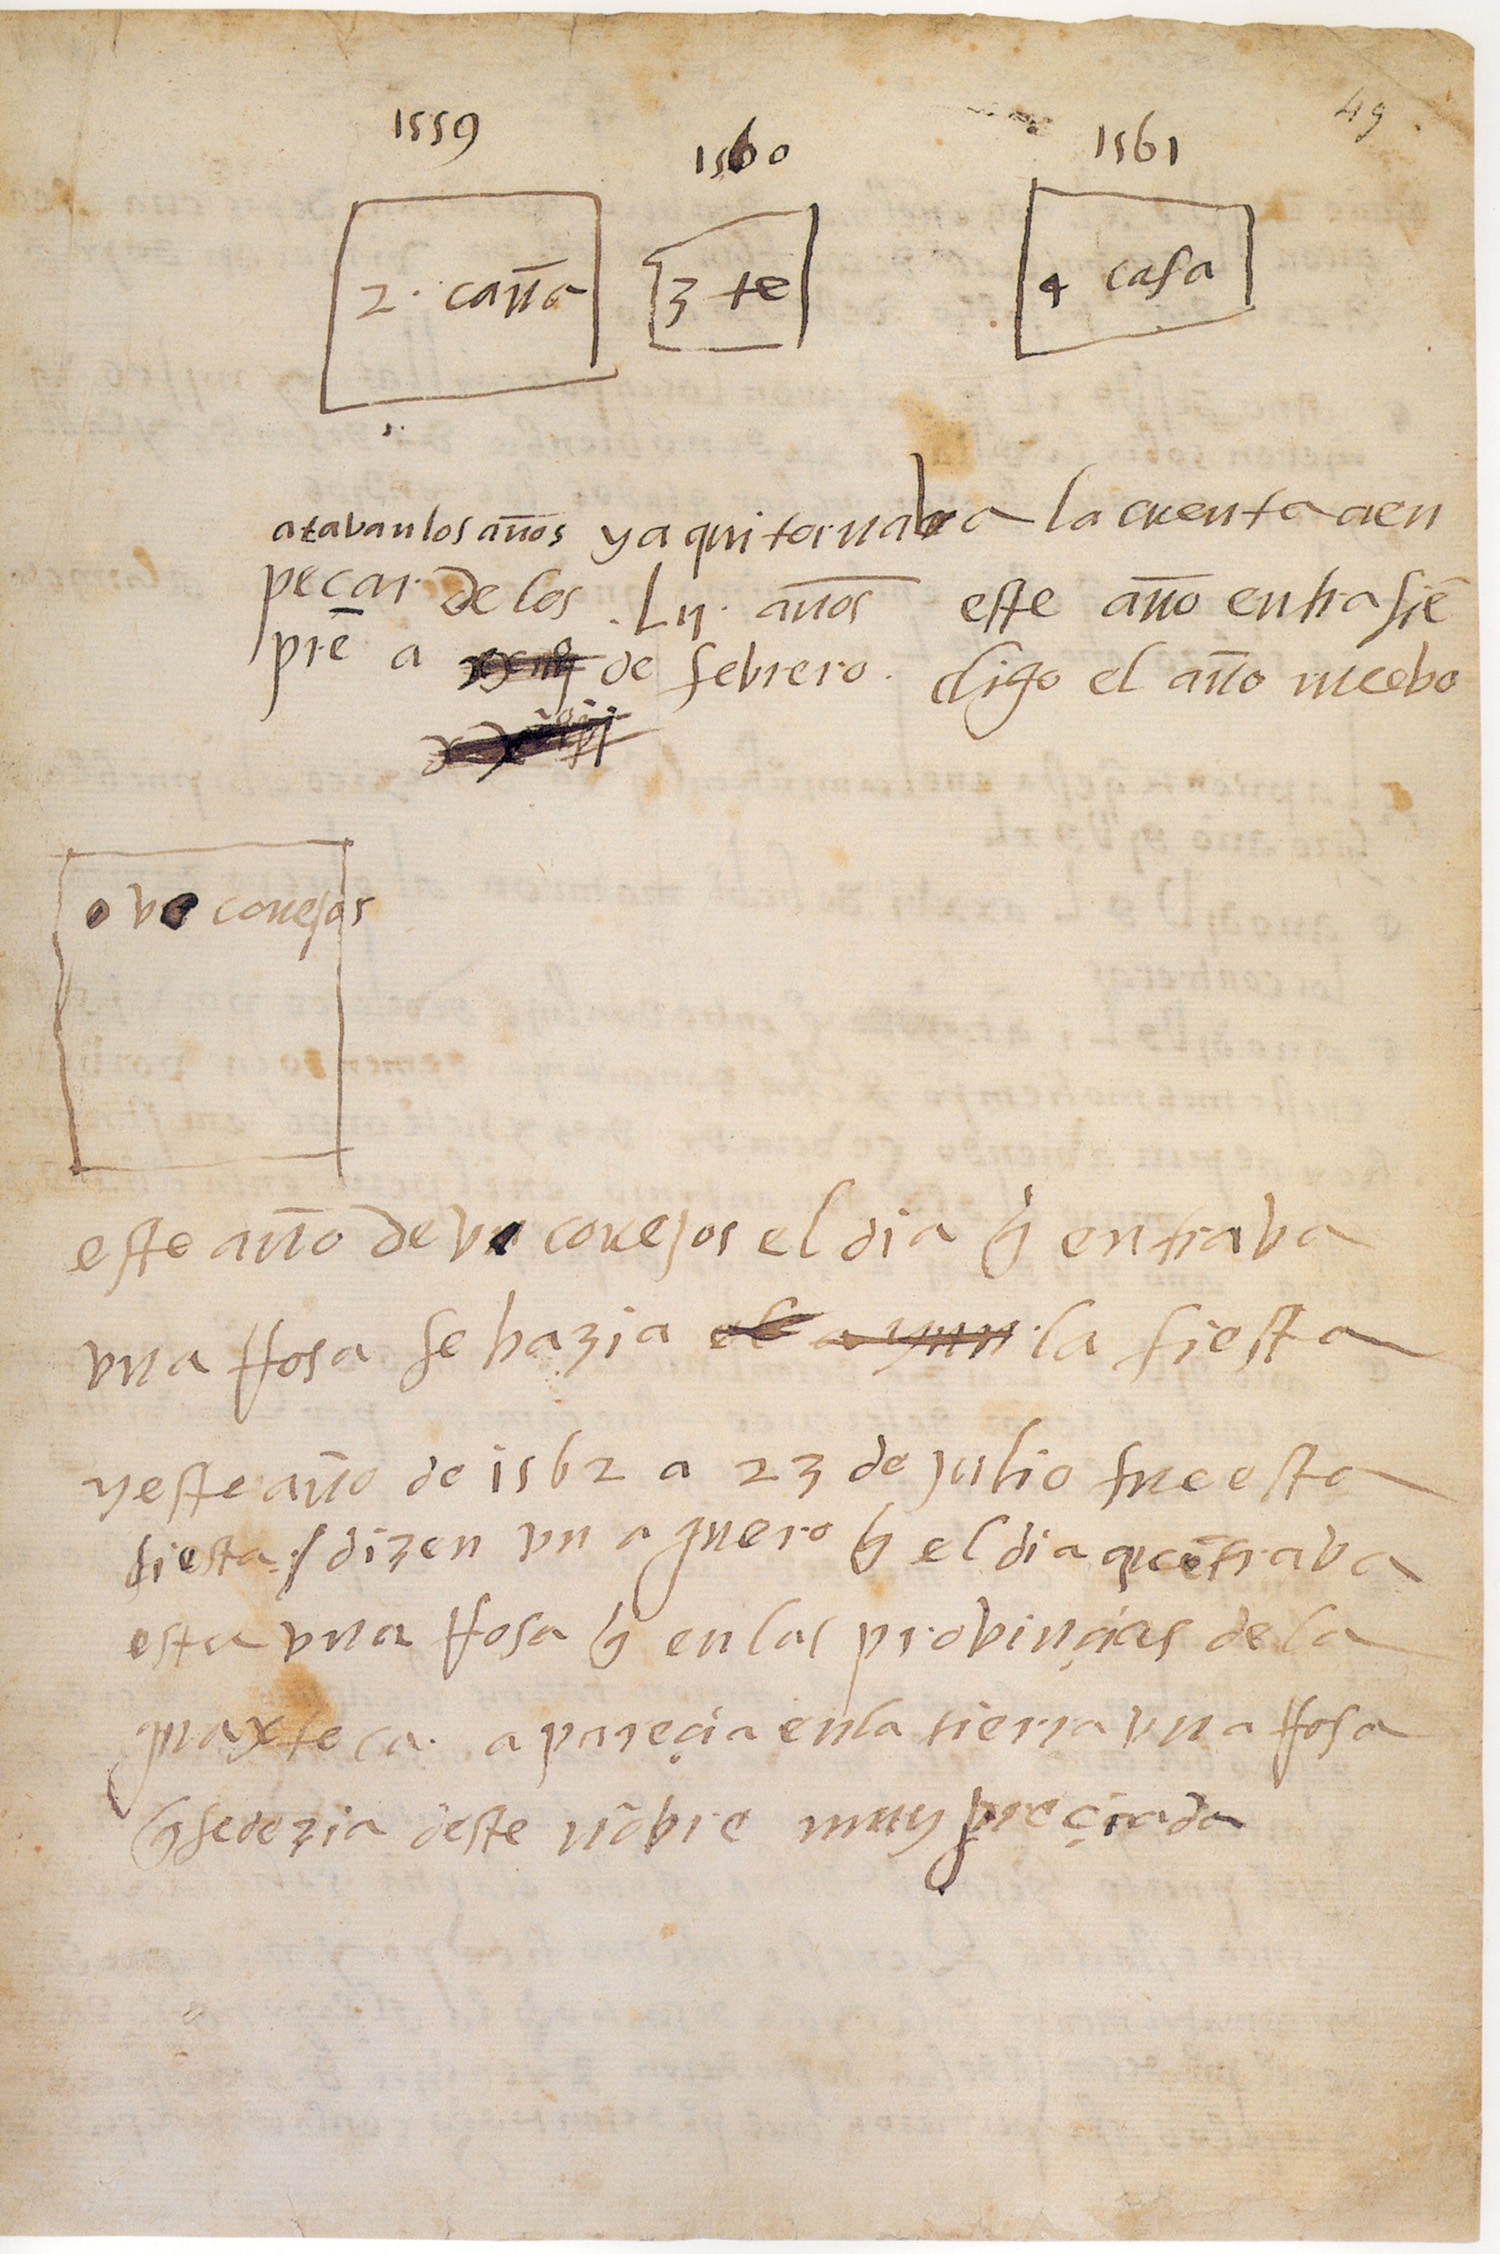 49
1559
1560
1561
2. caña
3 te
4 casa
atavan los años y aqui tornava la cuenta a en
peçar de los .Lij. años este año entra siē
prē a de febrero. digo el año nuebo
conejos
este año de conejos el dia q̃ entraba
vna rrosa se hazia la fiesta
y este año de 1562 a 23 de julio fue esta
fiesta / dizen vn aguero q̃ el dia que ētraba
esta vna rrosa q̃ en las probinçias de la
guaxteca. apareçia en la tierra vna rrosa
q̃ se dezia deste nōbre muy preçiada